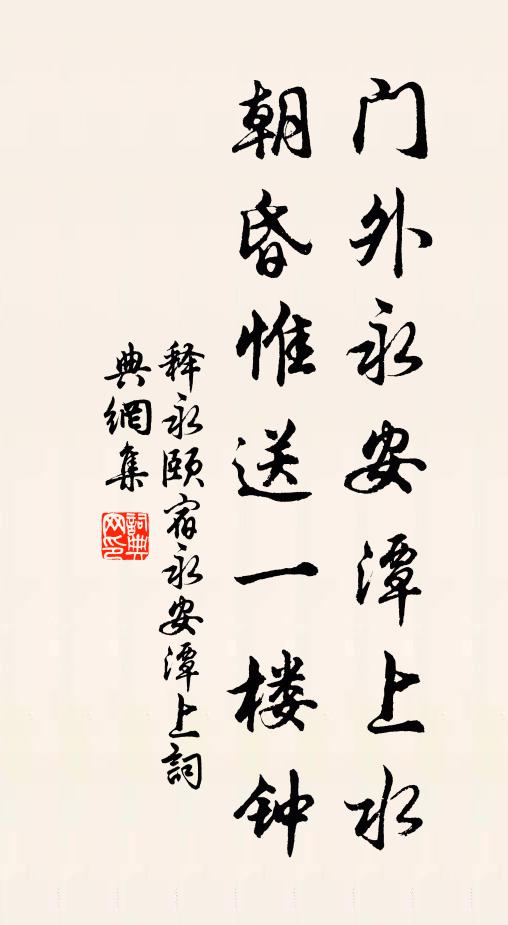 门外永安潭上水
朝昏惟送一楼钟
释永颐宿永安潭上詞
典網集
詞典网印